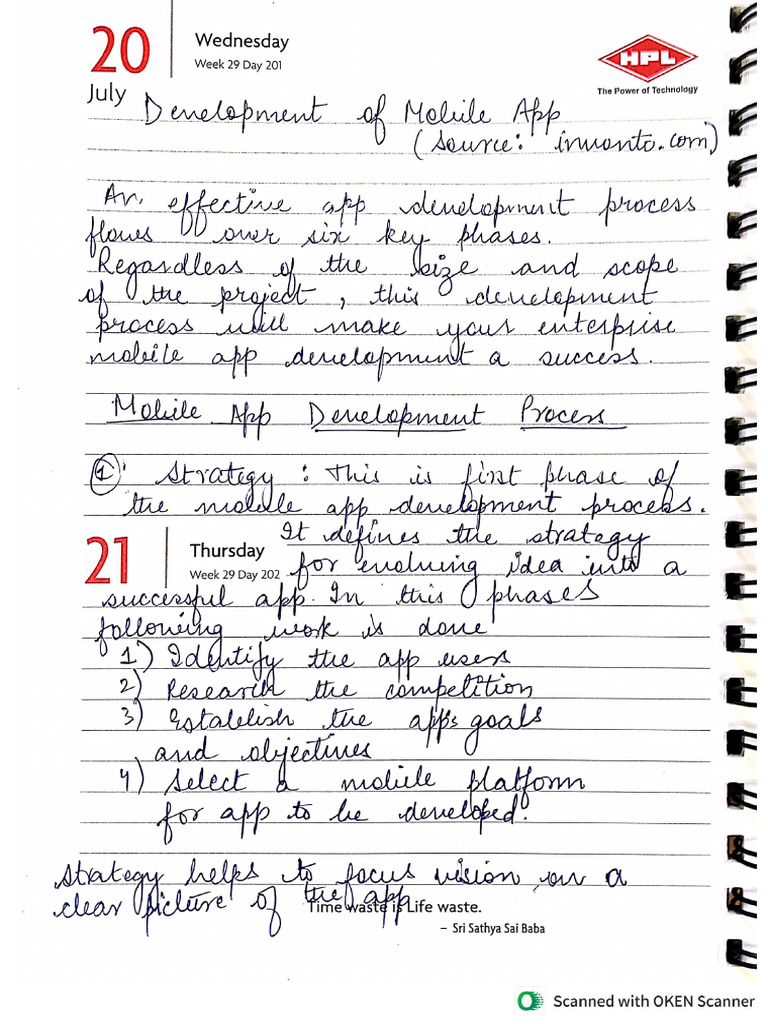 20
Wednesday
Week 29 Day 201
July
HPL
The Power of Technology
Development of Mobile App
(Source: invonto.com)
An effective app development process
flows over six key phases.
Regardless of the size and scope
of the project, this development
process will make your enterprise
mobile app development a success.
Mobile App Development Process
1: Strategy: This is first phase of
the mobile app development process.
21
Thursday
Week 29 Day 202
It defines the strategy
for evolving idea into a
successful app. In this phases
following work is done
1) Identify the app users
2) Research the competition
3) Establish the app's goals
and objectives
4) Select a mobile platform
for app to be developed.
Strategy helps to focus vision on a
clear picture of the app
Time waste is Life waste.
– Sri Sathya Sai Baba
Scanned with OKEN Scanner